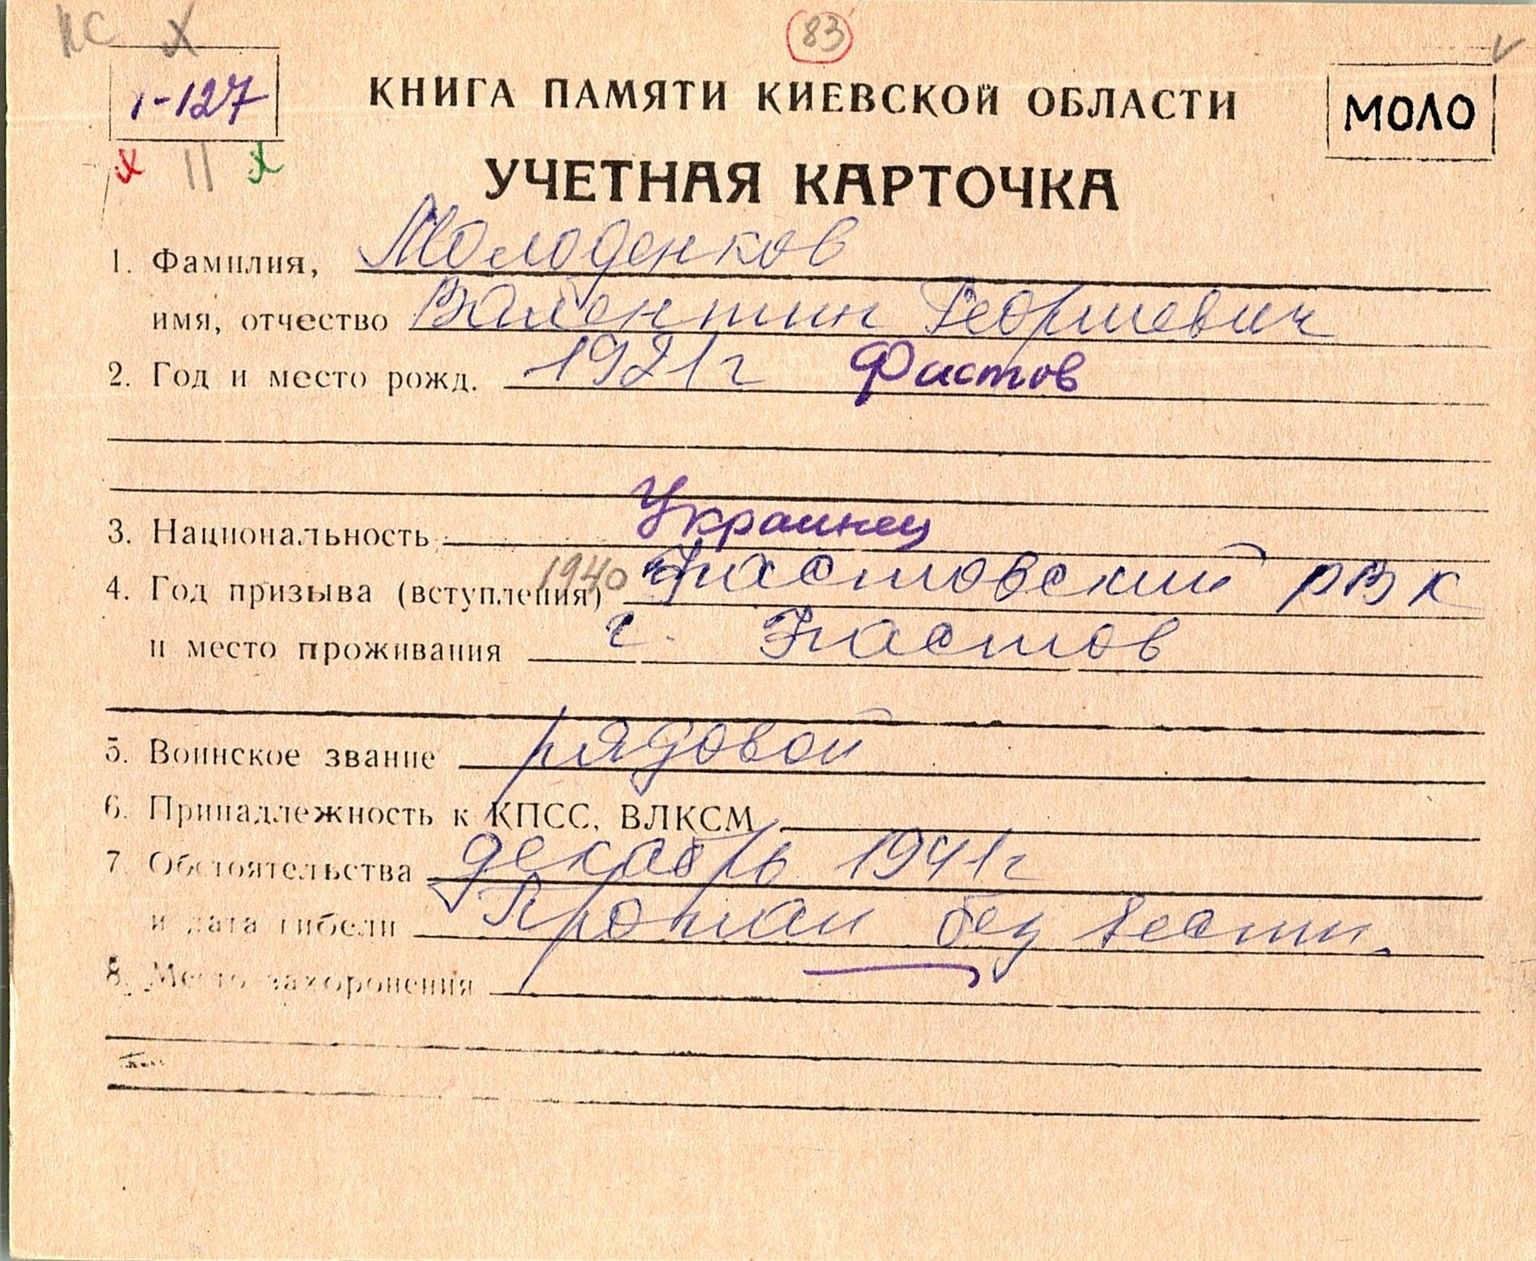 ПС X
83
V
1-127
КНИГА ПАМЯТИ КИЕВСКОЙ ОБЛАСТИ
МОЛО
х II х
УЧЕТНАЯ КАРТОЧКА
1. Фамилия, Молоденков
имя, отчество Валентин Георгиевич
2. Год и место рожд. 1921г Фастов
3. Национальность Украинец
4. Год призыва (вступления) 1940 Фастовский РВК
и место проживания г. Фастов
5. Воинское звание рядовой
6. Принадлежность к КПСС, ВЛКСМ
7. Обстоятельства декабрь 1941г
и дата гибели Пропал без вести.
8. Место захоронения